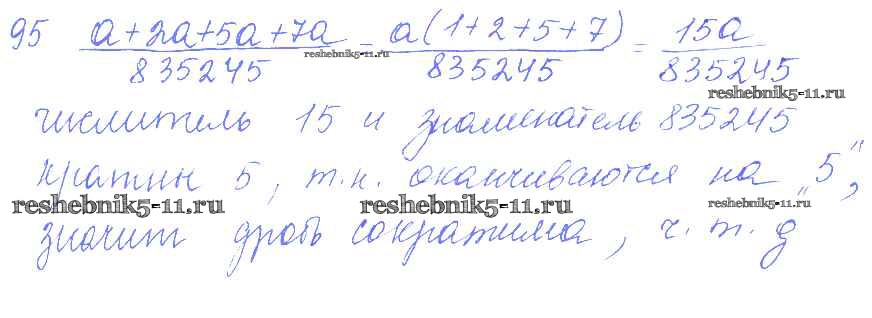 95 a+2a+5a+7a / 835245 = a(1+2+5+7) / 835245 = 15a / 835245
reshebnik5-11.ru
reshebnik5-11.ru
числитель 15 и знаменатель 835245
кратны 5, т.к. оканчиваются на „5",
reshebnik5-11.ru reshebnik5-11.ru reshebnik5-11.ru
значит дробь сократима, ч.т.д